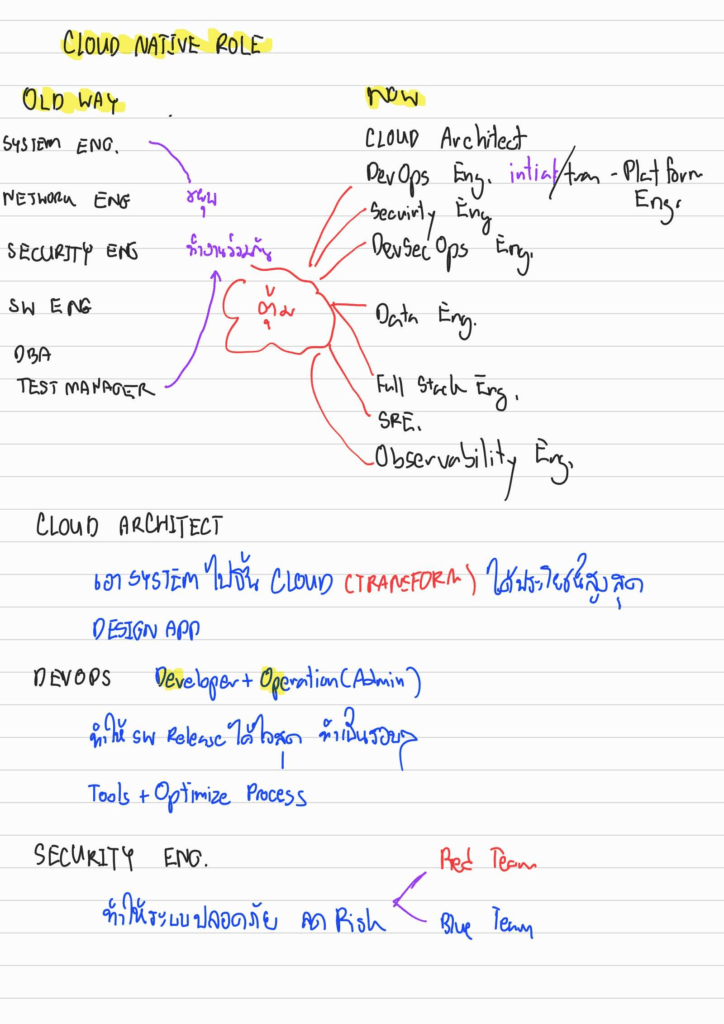 CLOUD NATIVE ROLE
OLD WAY
SYSTEM ENG.
NETWORK ENG
SECURITY ENG ทำงานร่วมกัน
SW ENG
DBA
TEST MANAGER
NOW
CLOUD Architect
DevOps Eng. intiat/tran - Platform Eng.
Security Eng
DevSecOps Eng.
Data Eng.
Full Stack Eng.
SRE.
Observability Eng.
CLOUD ARCHITECT
เอา SYSTEM ไปขึ้น CLOUD (TRANSFORM) ได้ประโยชน์สูงสุด
DESIGN APP
DEVOPS Developer + Operation (Admin)
ทำให้ SW Release ได้ไวสุด ทำเป็นรอบๆ
Tools + Optimize Process
SECURITY ENG.
ทำให้ระบบปลอดภัย ลด Risk
Red Team
Blue Team